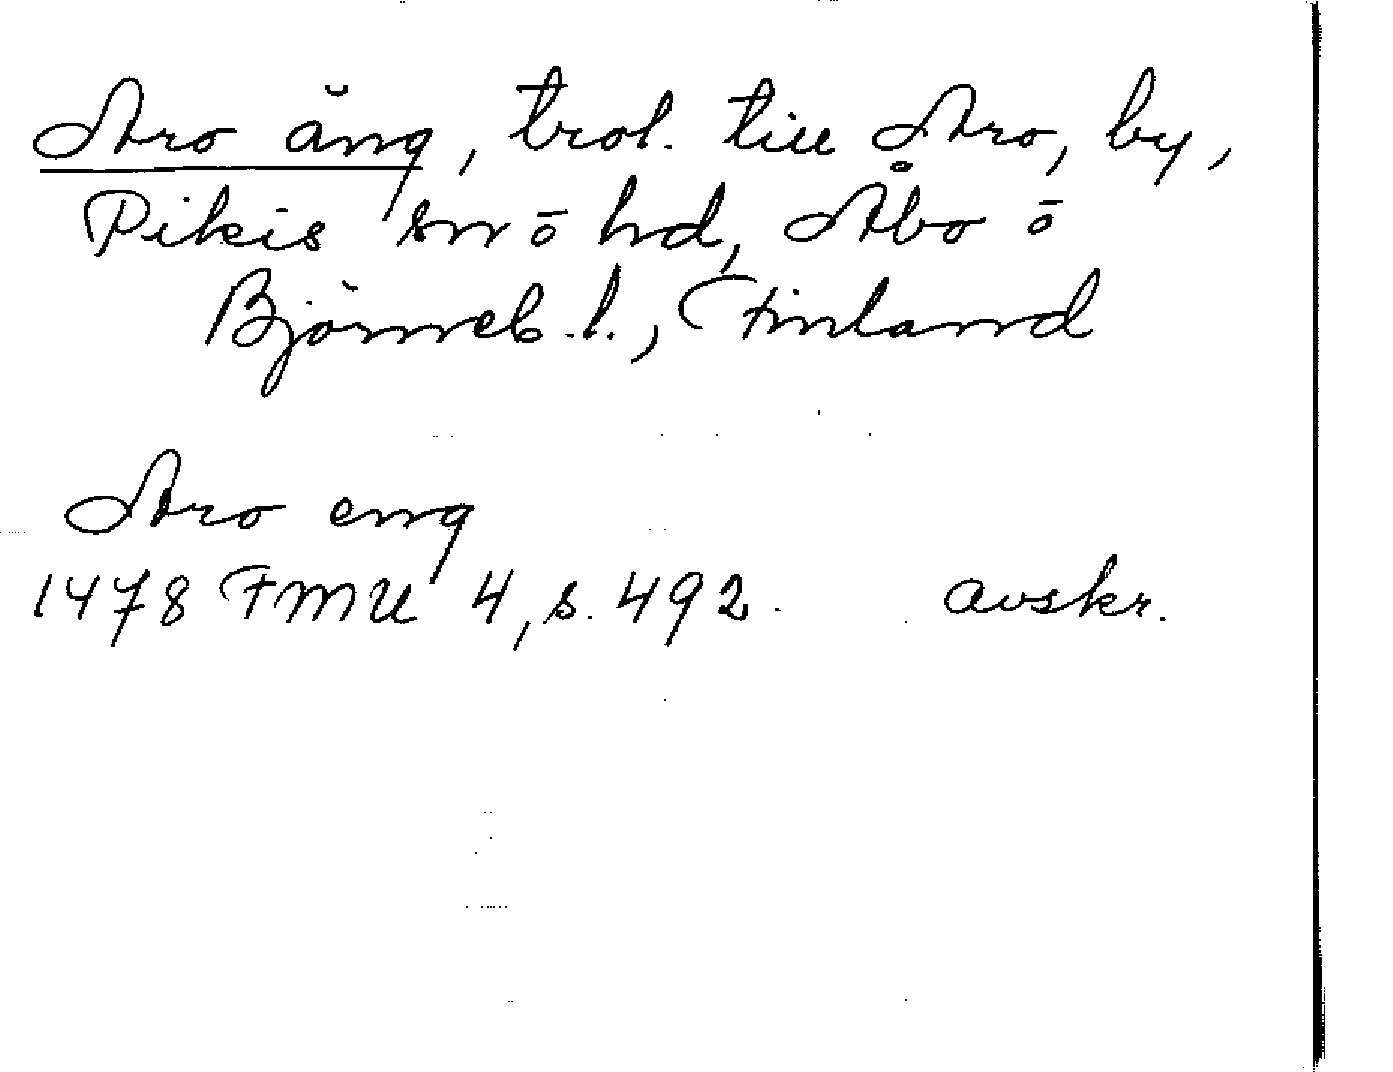 Aro äng, trol. till Aro, by,
Pikis sn ō hd, Åbo ō
Björneb. l., Finland
Aro eng
1478 FMU 4, s. 492. avskr.